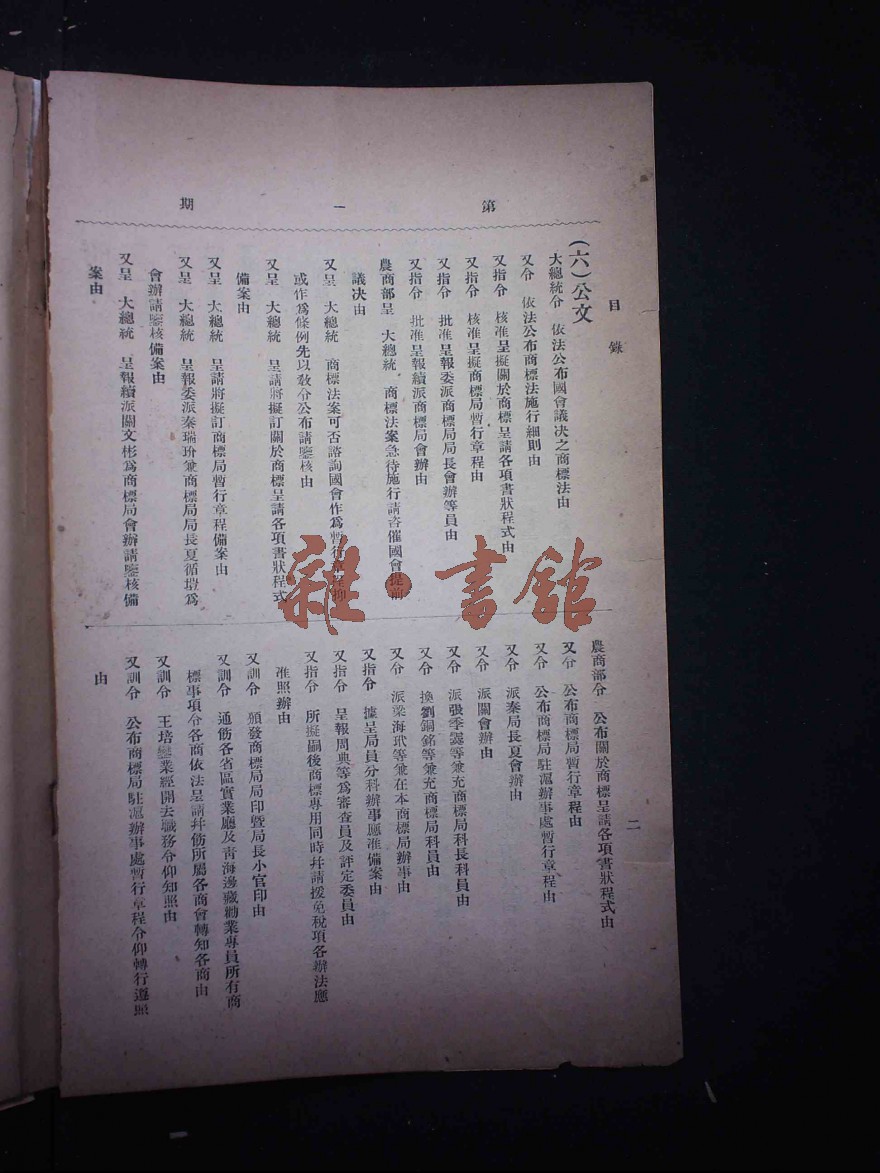 第一期
目錄
二
(六)公文
大總統令　依法公布國會議決之商標法由
又令　依法公布商標法施行細則由
又指令　核准呈擬關於商標呈請各項書狀程式由
又指令　核准呈擬商標局暫行章程由
又指令　批准呈報委派商標局局長會辦等員由
又指令　批准呈報續派商標局會辦由
農商部呈　大總統　商標法案急待施行請咨催國會提前
議決由
又呈　大總統　商標法案可否諮詢國會作爲暫行章程抑
或作爲條例先以敎令公布請鑒核由
又呈　大總統　呈請將擬訂關於商標呈請各項書狀程式
備案由
又呈　大總統　呈請將擬訂商標局暫行章程備案由
又呈　大總統　呈報委派秦瑞玠兼商標局局長夏循塏爲
會辦請鑒核備案由
又呈　大總統　呈報續派關文彬爲商標局會辦請鑒核備
案由
農商部令　公布關於商標呈請各項書狀程式由
又令　公布商標局暫行章程由
又令　公布商標局駐滬辦事處暫行章程由
又令　派秦局長夏會辦由
又令　派關會辦由
又令　派張季霖等兼充商標局科長科員由
又令　換劉銅銘等兼充商標局科員由
又令　派梁海玳等兼在本商標局辦事由
又指令　據呈局員分科辦事應准備案由
又指令　呈報周典等爲審查員及評定委員由
又指令　所擬嗣後商標專用同時幷請援免稅項各辦法應
准照辦由
又訓令　頒發商標局局印暨局長小官印由
又訓令　通飭各省區實業廳及靑海邊藏勸業專員所有商
標事項令各商依法呈請幷飭所屬各商會轉知各商由
又訓令　王培業經開去職務令仰知照由
又訓令　公布商標局駐滬辦事處暫行章程令仰轉行遵照
由
雜·書館